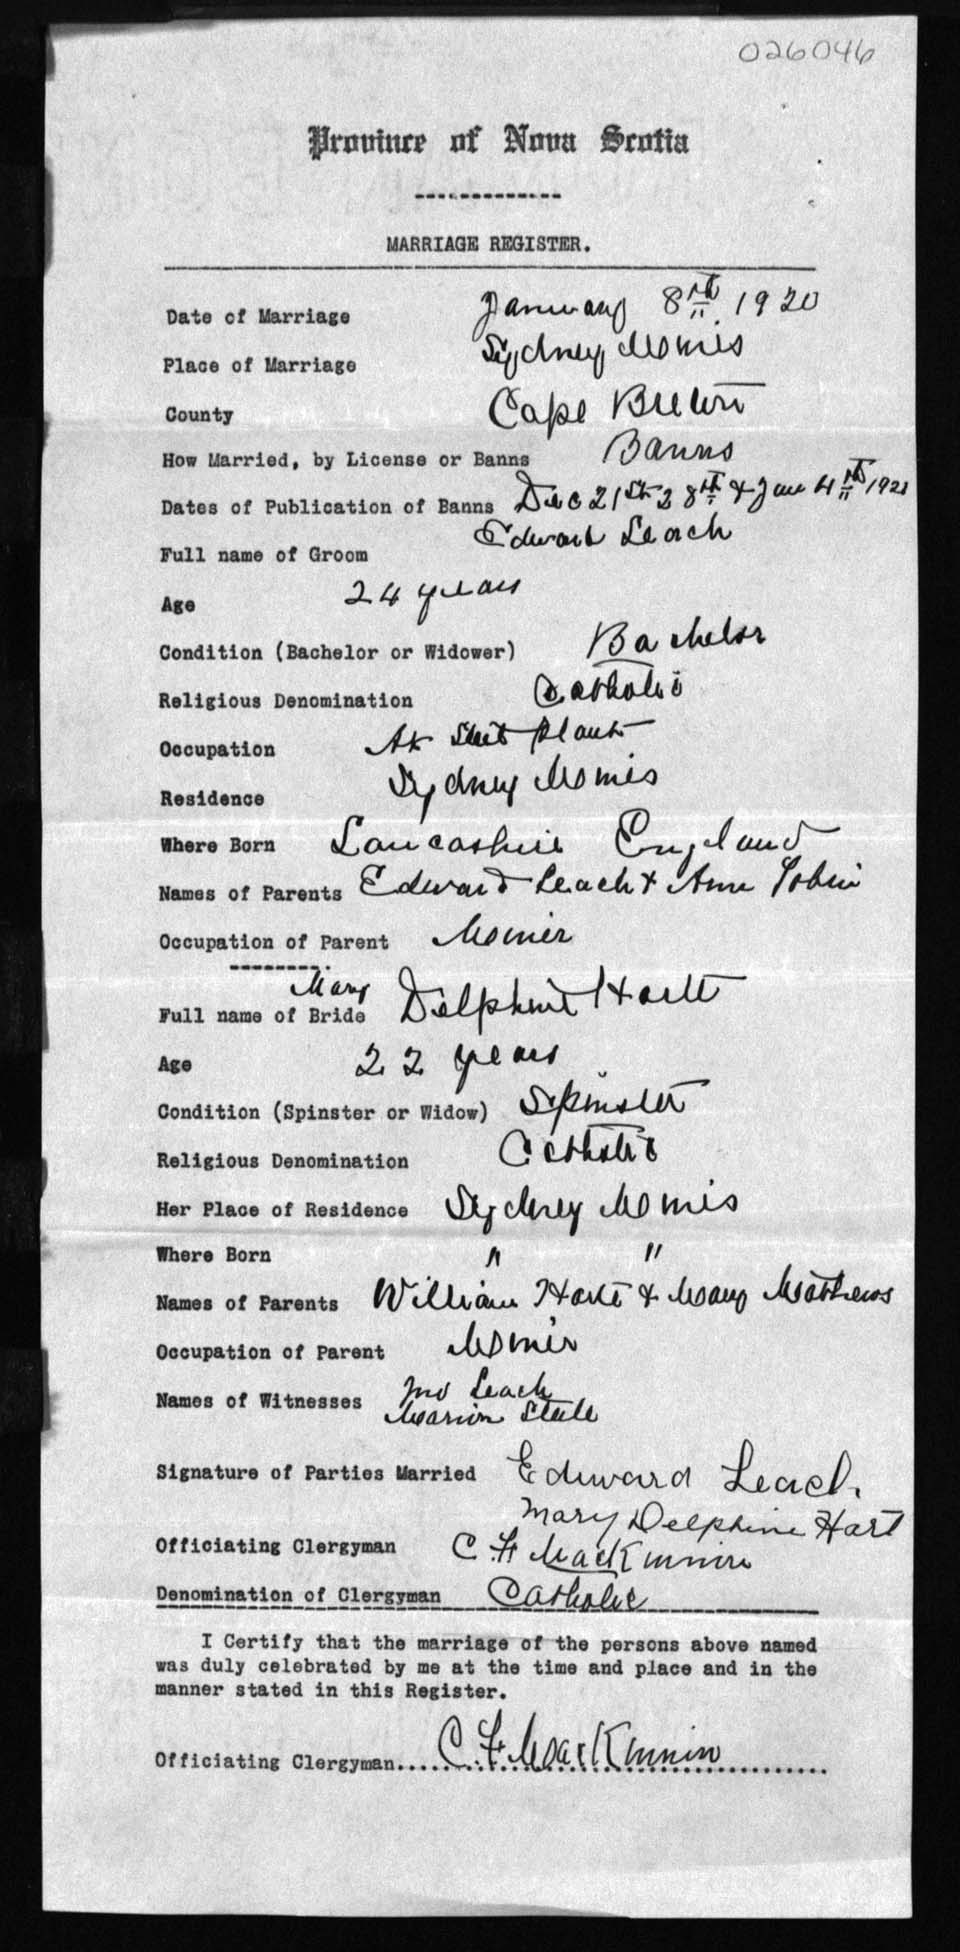 026046
Province of Nova Scotia
MARRIAGE REGISTER.
Date of Marriage January 8th 1920
Place of Marriage Sydney Mines
County Cape Breton
How Married, by License or Banns Banns
Dates of Publication of Banns Dec 21st 28th & Jan 4th 192
Full name of Groom Edward Leach
Age 24 years
Condition (Bachelor or Widower) Bachelor
Religious Denomination Catholic
Occupation At Steel Plant
Residence Sydney Mines
Where Born Lancashire England
Names of Parents Edward Leach & Ann Tobin
Occupation of Parent Miner
Mary
Full name of Bride Delphine Harte
Age 22 years
Condition (Spinster or Widow) Spinster
Religious Denomination Catholic
Her Place of Residence Sydney Mines
Where Born " "
Names of Parents William Harte & Mary Matthews
Occupation of Parent Miner
Names of Witnesses Jno Leach
Marion Steele
Signature of Parties Married Edward Leach.
Mary Delphine Hart
Officiating Clergyman C. F. MacKinnon
Denomination of Clergyman Catholic
I Certify that the marriage of the persons above named
was duly celebrated by me at the time and place and in the
manner stated in this Register.
Officiating Clergyman.... C. F. MacKinnon